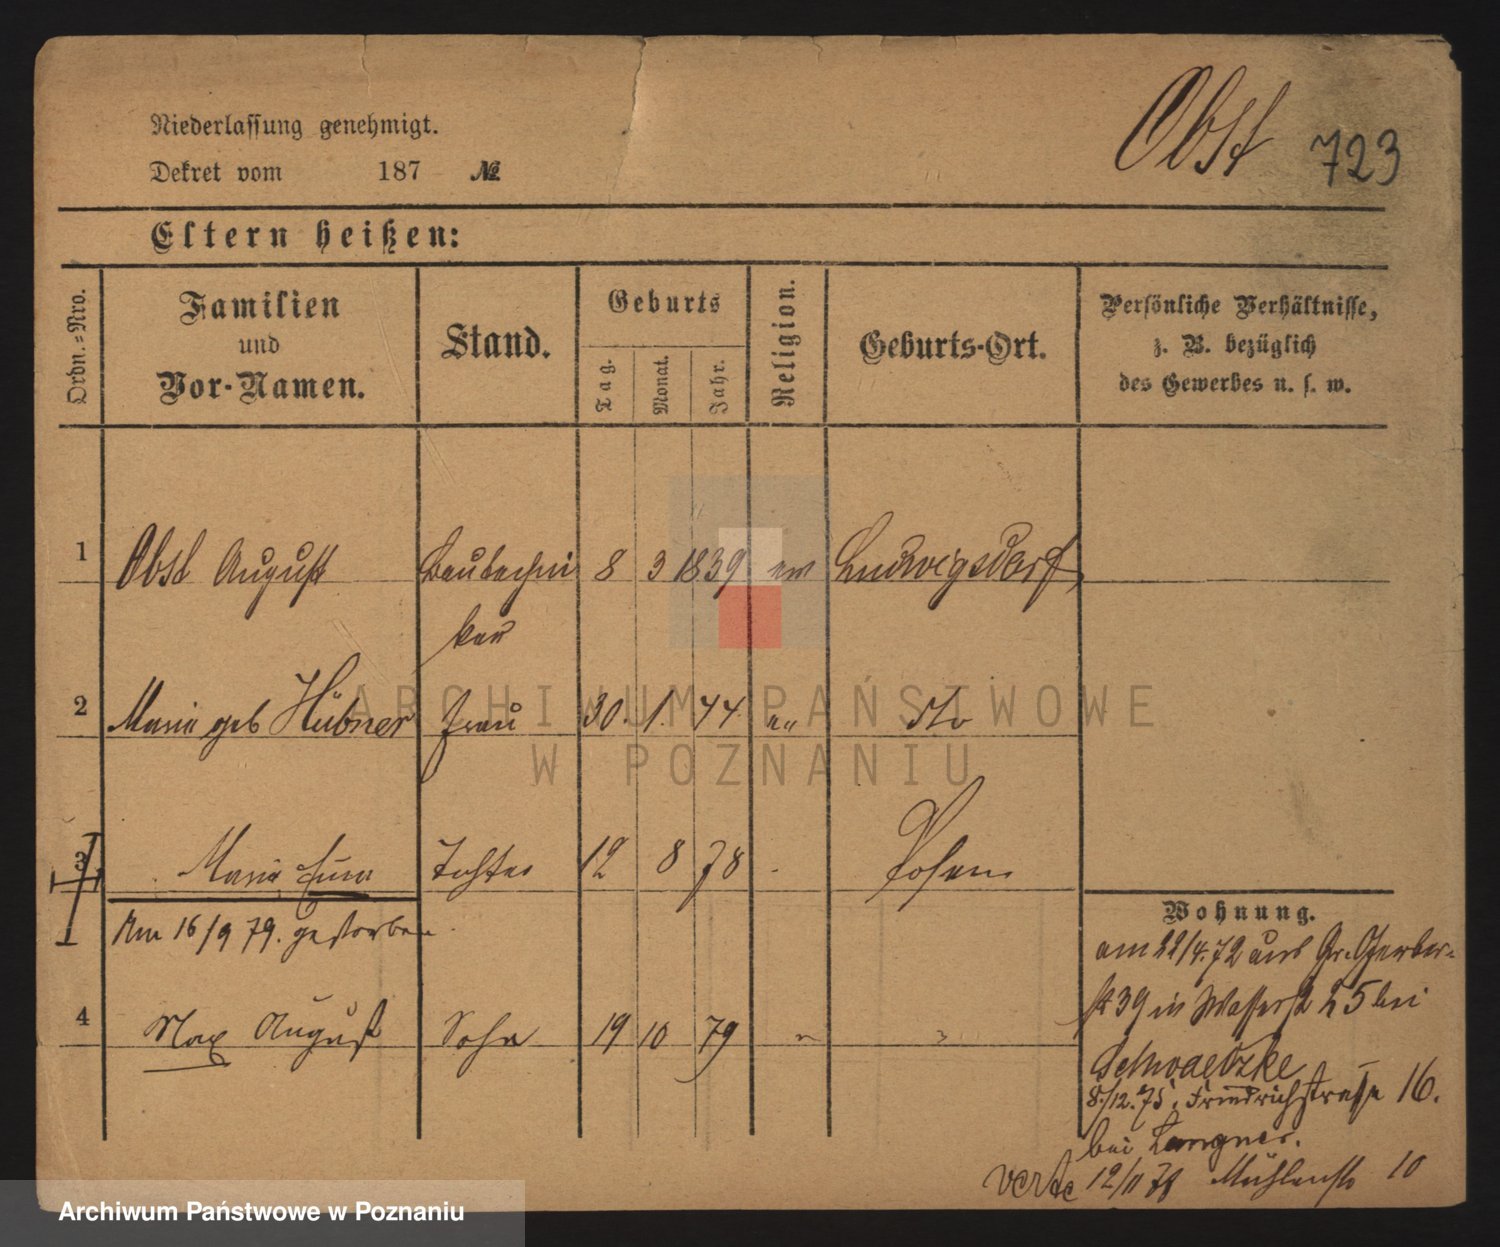 Niederlassung genehmigt.
Dekret vom 187 №
Obst 723
Eltern heißen:
Ordn.=Nro.
Familien
und
Vor-Namen.
Stand.
Geburts
Tag.
Monat.
Jahr.
Religion.
Geburts-Ort.
Persönliche Verhältnisse,
z. B. bezüglich
des Gewerbes u. s. w.
1 Obst August Bautechni 8 3 1839 ev Ludwigsdorf
ker
2 Maria geb Hübner Frau 30. 1. 44 ev dto
3 Maria Tochter 12 8 78 Posen
Am 16/9 79. gestorben
4 Max August Sohn 19 10 79 " "
Wohnung.
am 22/4.72 aus Gr. Gerber-
st 39 in Wasserst 25 bei
Schwaetzke
8/12.75. Friedrichstraße 16.
bei Langner.
verte 12/11 78 Mühlenstr 10
ARCHIWUM PAŃSTWOWE
W POZNANIU
Archiwum Państwowe w Poznaniu